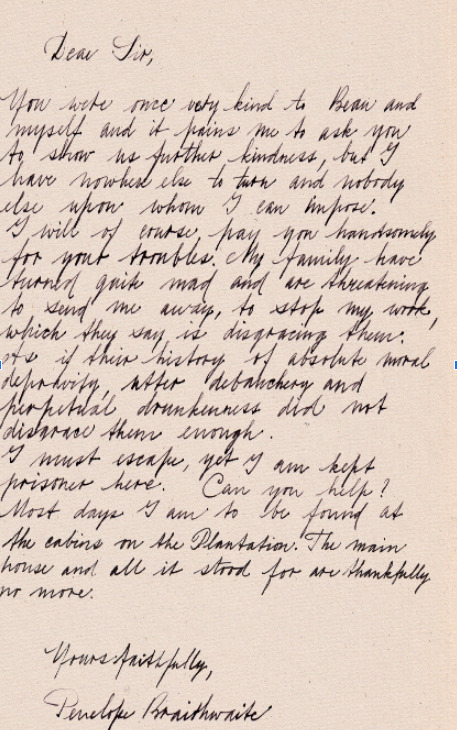 Dear Sir,
You were once very kind to Beau and
myself and it pains me to ask you
to show us further kindness, but I
have nowhere else to turn and nobody
else upon whom I can impose.
I will of course pay you handsomely
for your troubles. My family have
turned quite mad and are threatening
to send me away, to stop my work,
which they say is disgracing them.
As if their history of absolute moral
depravity, utter debauchery and
perpetual drunkenness did not
disgrace them enough.
I must escape, yet I am kept
prisoner here. Can you help?
Most days I am to be found at
the cabins on the Plantation. The main
house and all it stood for are thankfully
no more.
Yours faithfully,
Penelope Braithwaite